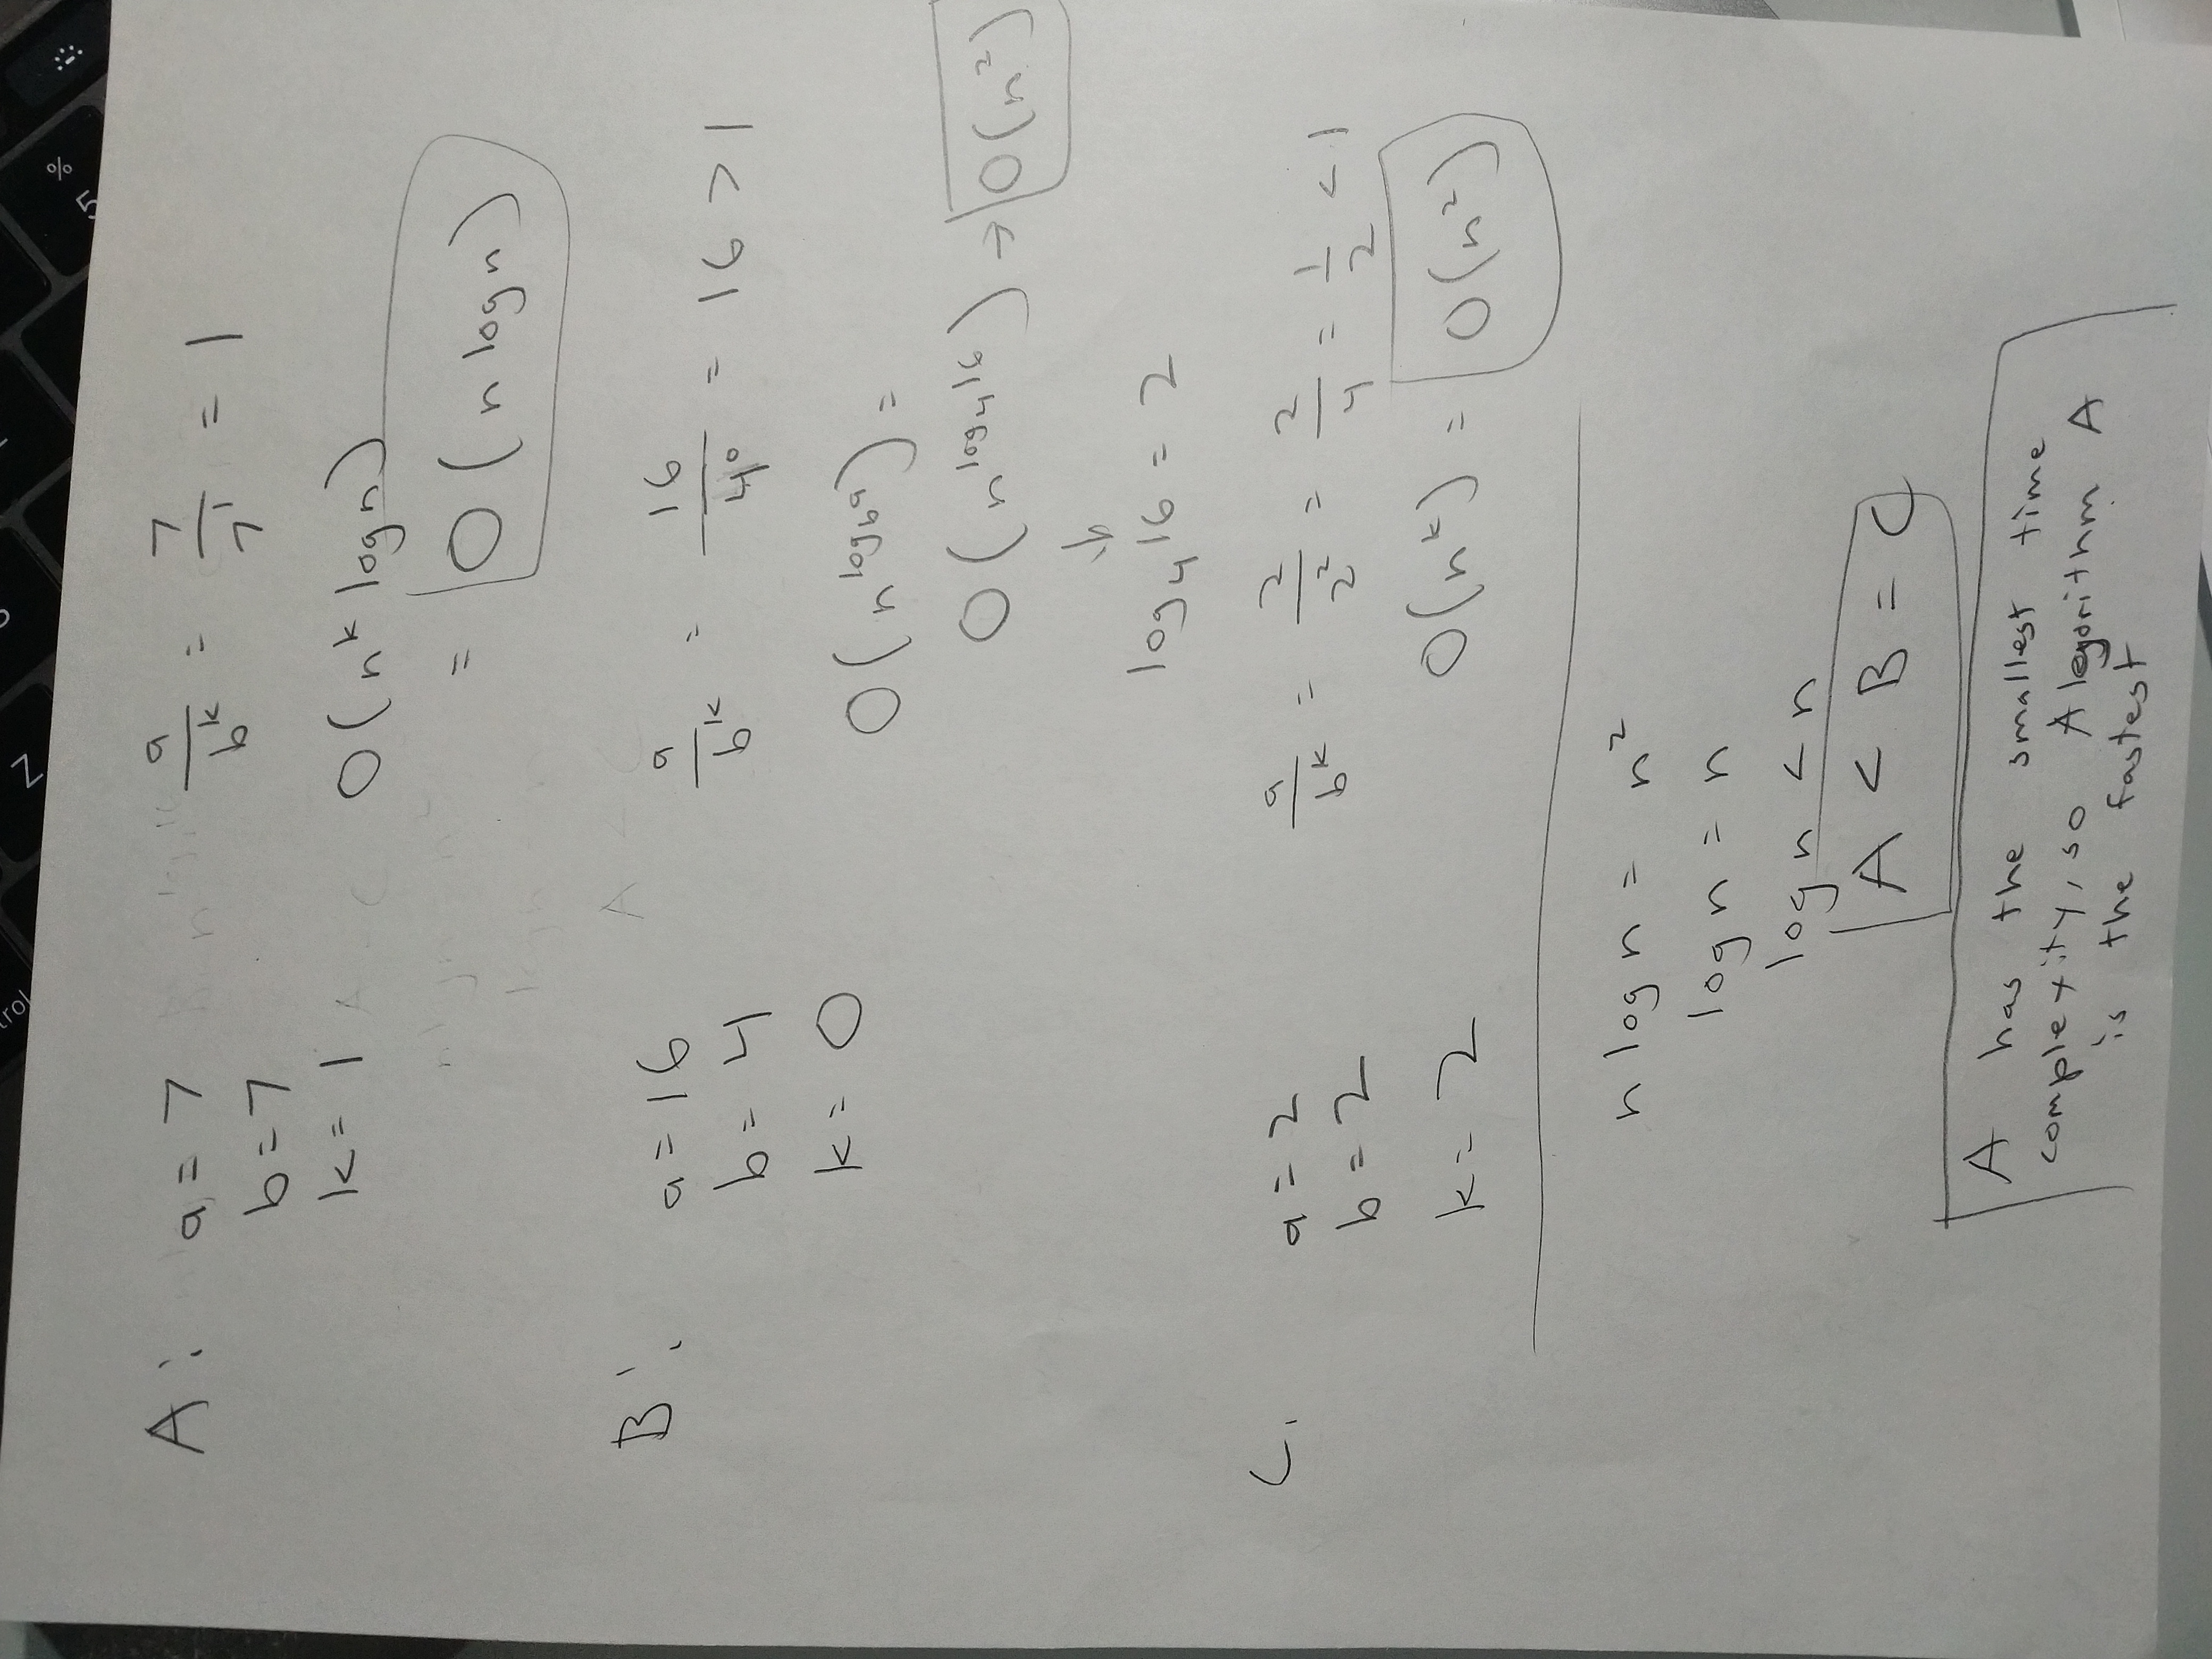 trol
Z
%
5
A: a = 7 a/b^k = 7/7^1 = 1
b = 7
k = 1 O(n^k log n)
= O(n log n)
B: a = 16 a/b^k = 16/4^0 = 16 > 1
b = 4
k = 0 O(n^{log_b a}) =
O(n^{log_4 16}) → O(n^2)
↓
log_4 16 = 2
C. a = 2 a/b^k = 2/2^2 = 2/4 = 1/2 < 1
b = 2
k = 2 O(n^k) = O(n^2)
n log n = n^2
log n = n
log n < n
A < B = C
A has the smallest time
complexity, so Algorithm A
is the fastest